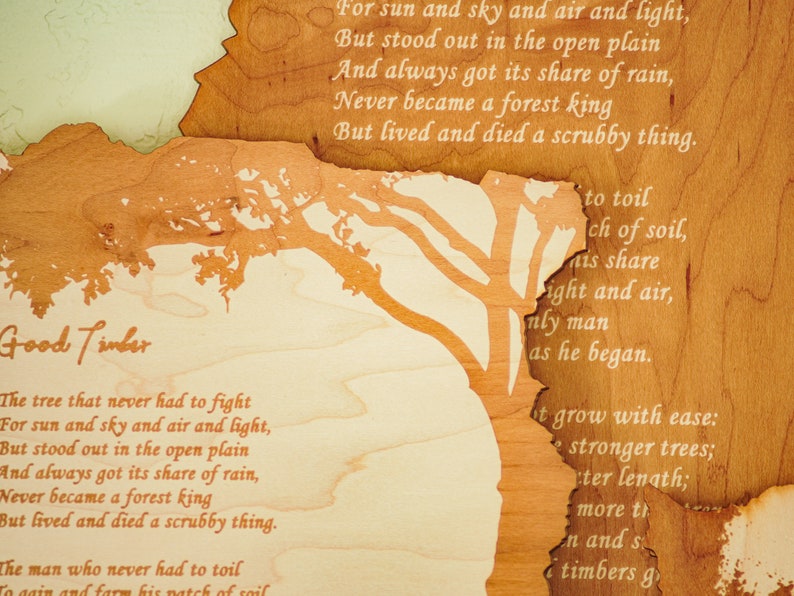 For sun and sky and air and light,
But stood out in the open plain
And always got its share of rain,
Never became a forest king
But lived and died a scrubby thing.
to toil
ch of soil,
his share
ight and air,
nly man
as he began.
t grow with ease:
stronger trees;
ter length;
more th
en and s
timbers g
Good Timber
The tree that never had to fight
For sun and sky and air and light,
But stood out in the open plain
And always got its share of rain,
Never became a forest king
But lived and died a scrubby thing.
The man who never had to toil
To gain and farm his patch of soil